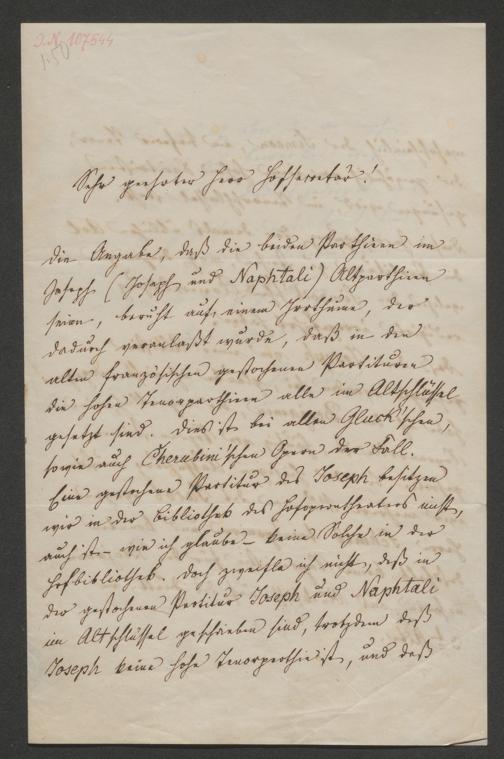 I.N. 107544
1.50
Sehr geehrter Herr Hofsecretär!
Die Angabe, daß die beiden Parthieen im
Joseph (Joseph und Naphtali) Altparthieen
seien, beruht auf einem Irrthume, der
dadurch veranlaßt wurde, daß in den
alten französischen gestochenen Partituren
die hohen Tenorparthieen alle im Altschlüssel
gesetzt sind. Dies ist bei allen Gluck'schen,
sowie auch Cherubini'schen Opern der Fall.
Eine gestochene Partitur des Joseph besitzen
wir in der Bibliothek des Hofoperntheaters nicht,
auch ist – wie ich glaube – keine Solche in der
Hofbibliothek. Doch zweifle ich nicht, daß in
der gestochenen Partitur Joseph und Naphtali
im Altschlüssel geschrieben sind, trotzdem daß
Joseph keine hohe Tenorparthie ist, und daß